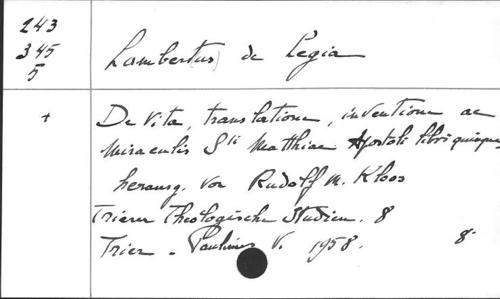 243
345
5
Lambertus de Legia
+
De vita, translatione, inventione ac
miraculis Sti Matthiae Apostoli libri quinque
herausg. von Rudolf M. Kloos
Trierer Theologische Studien. 8
Trier - Paulinus V. 1958. 8°